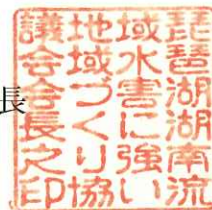 長
琵琶湖湖南流
域水害に強い
地域づくり協
議会会長之印